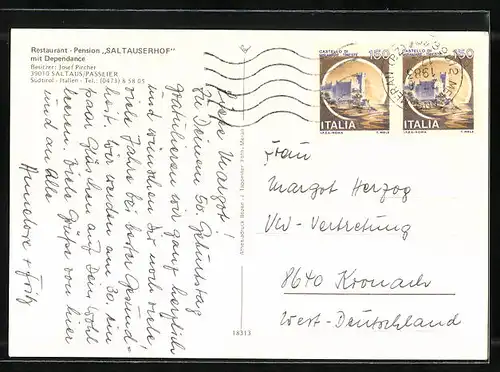 Restaurant - Pension „SALTAUSERHOF"
mit Dependance
Besitzer: Josef Pircher
39010 SALTAUS/PASSEIER
Südtirol - Italien - Tel.: (0473) 8 58 05
Liebe Margot!
Zu Deinem 50. Geburtstag
gratulieren wir ganz herzlich
und wünschen Dir noch viele
viele Jahre bei bester Gesund-
heit. Wir werden am 30. ein
paar Gläschen auf Dein Wohl
leeren. Viele Grüße von hier
und an Alle
Annelore + Fritz
18313
CASTELLO DI
MIRAMARE TRIESTE
150
ITALIA
CASTELLO DI
MIRAMARE TRIESTE
150
ITALIA
Frau
Margot Herzog
VW-Vertretung
8640 Kronach
West-Deutschland